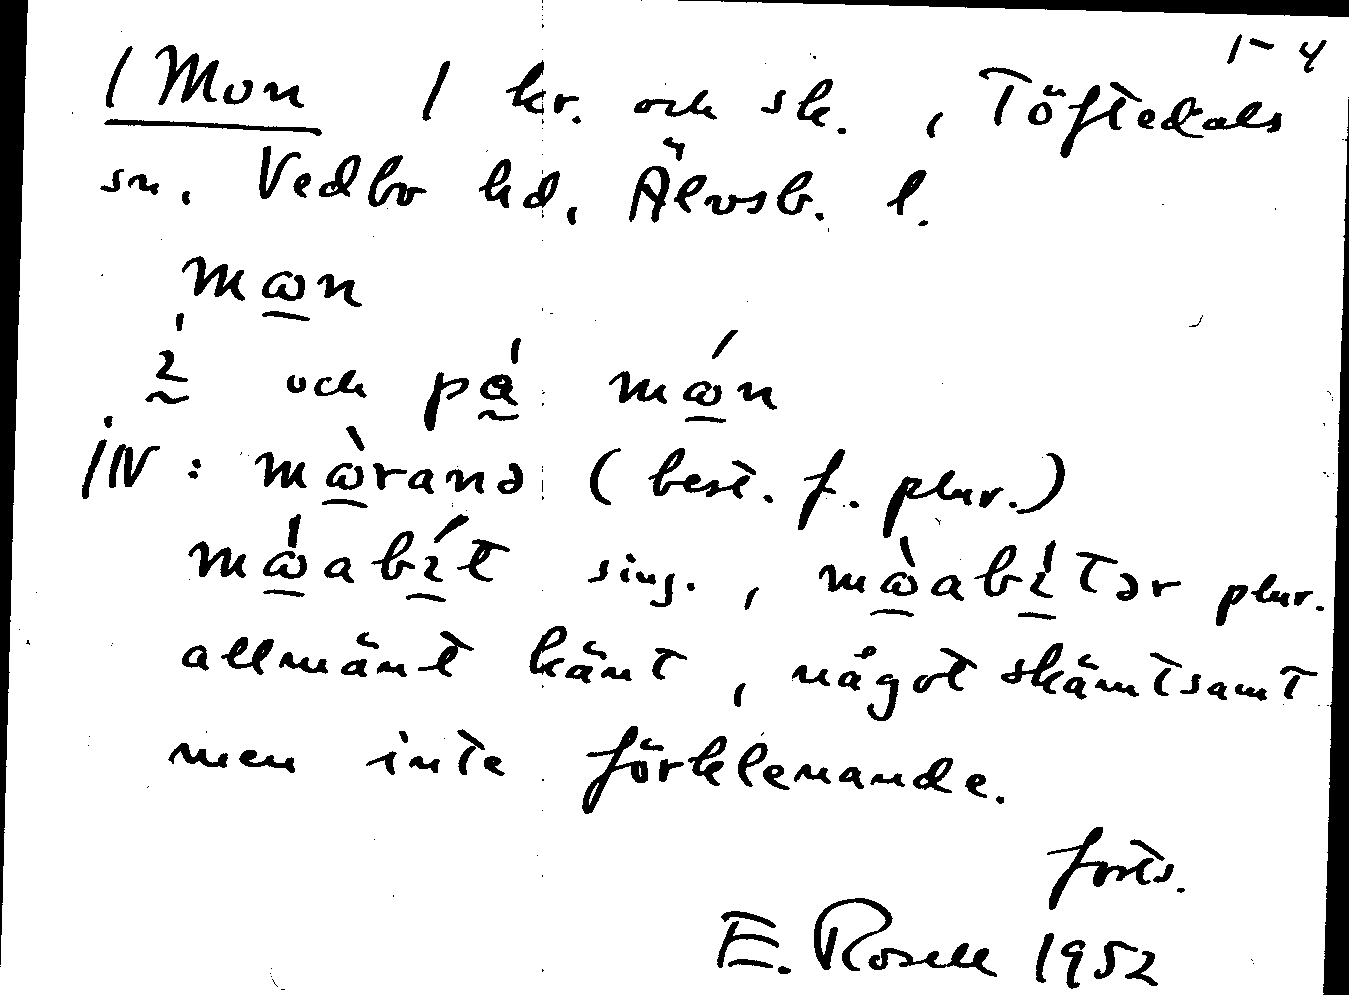 1–4
/ Mon / kr. och sk. , Töftedals
sn. Vedbo hd, Älvsb. l.
mɷn
ı och på mɷ́n
IN : mɷ̀ranə ( best. f. plur. )
mɷ́abít sing. , mɷ̀abítər plur.
allmänt känt , något skämtsamt
men inte förklenande.
forts.
E. Rosell 1952